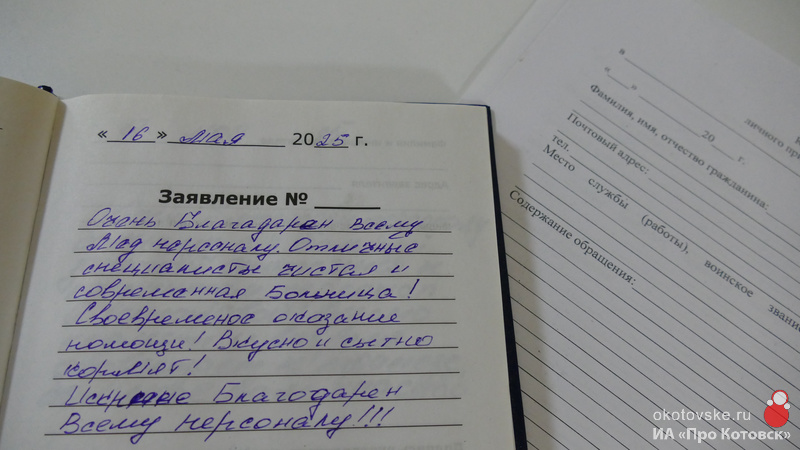 « 16 » мая 2025 г.
Заявление №
Очень Благадарен всему
Мед персоналу. Отличные
специалисты чистая и
современная Больница!
Своевременое оказание
помощи! Вкусно и сытно
кормят!
Искрене Благодарен
Всему персоналу!!!
в
« »
20 г.
личного пр
Фамилия, имя, отчество гражданина:
Почтовый адрес:
тел.
Место службы (работы), воинское звание
Содержание обращения:
okotovske.ru
ИА «Про Котовск»